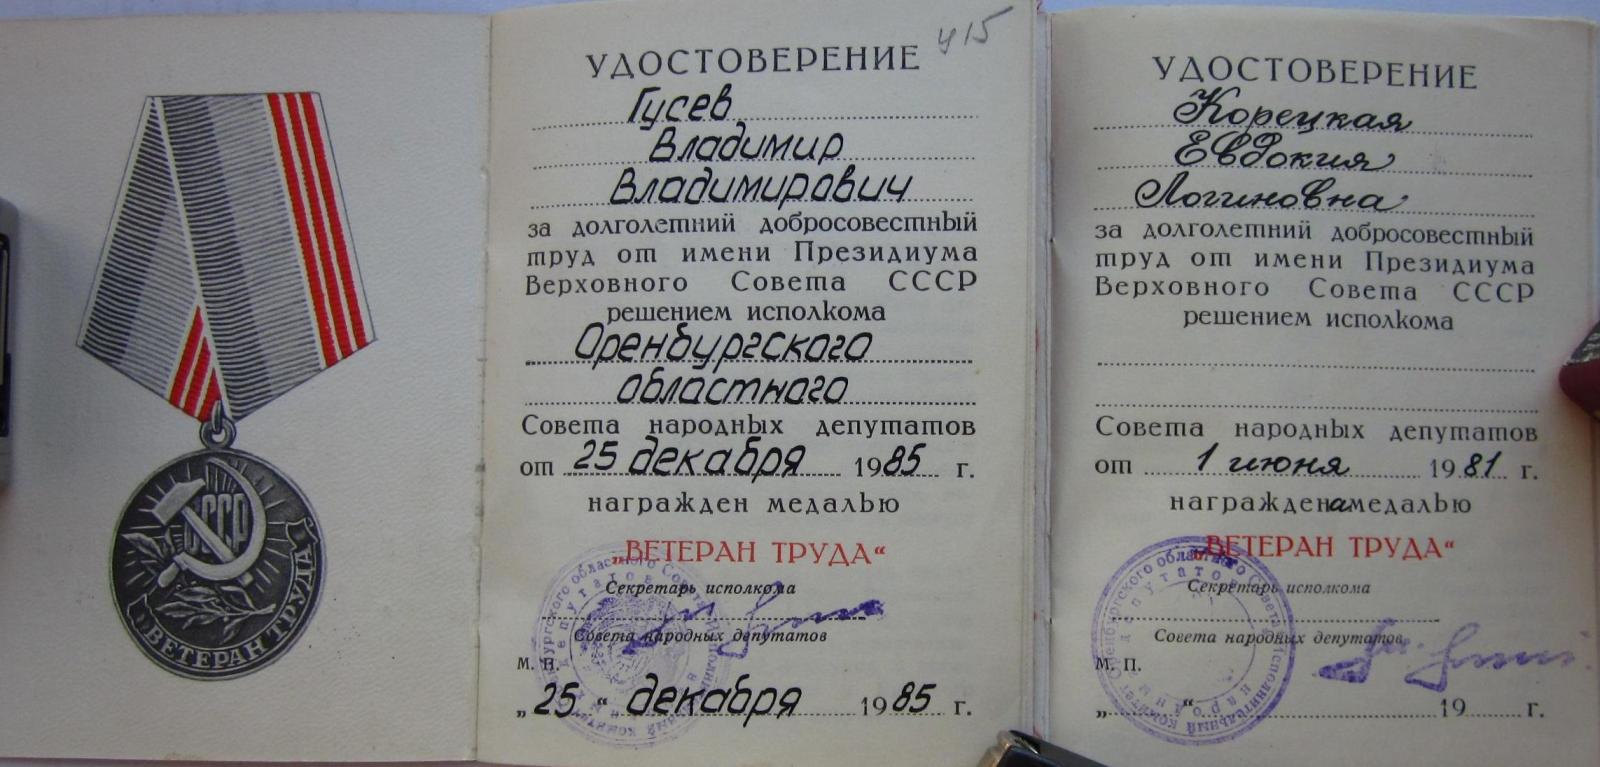 СССР
ВЕТЕРАН ТРУДА
415
УДОСТОВЕРЕНИЕ
Гусев
Владимир
Владимирович
за долголетний добросовестный
труд от имени Президиума
Верховного Совета СССР
решением исполкома
Оренбургского
областного
Совета народных депутатов
от 25 декабря 1985 г.
награжден медалью
„ВЕТЕРАН ТРУДА“
Секретарь исполкома
Совета народных депутатов
М. П.
„25“ декабря 1985 г.
УДОСТОВЕРЕНИЕ
Корецкая
Евдокия
Логиновна
за долголетний добросовестный
труд от имени Президиума
Верховного Совета СССР
решением исполкома
Совета народных депутатов
от 1 июня 1981 г.
награждена медалью
„ВЕТЕРАН ТРУДА“
Секретарь исполкома
Совета народных депутатов
М. П.
„ “ 19 г.
Исполнительный комитет Оренбургского областного Совета
народных депутатов